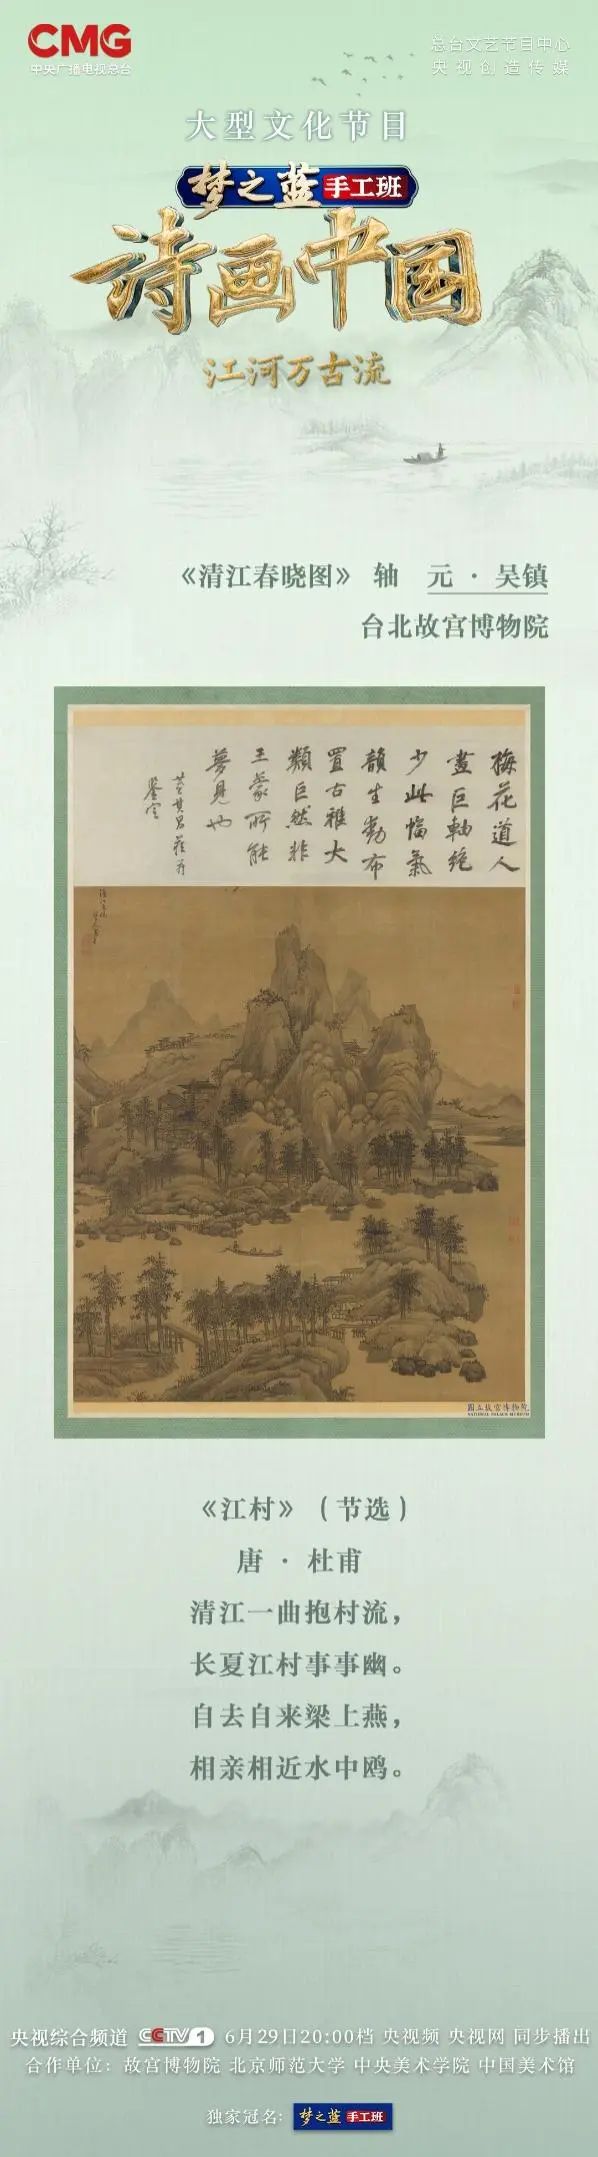 CMG
中央广播电视总台
总台文艺节目中心
央视创造传媒
大型文化节目
梦之蓝 手工班
诗画中国
江河万古流
《清江春晓图》 轴 元 · 吴镇
台北故宫博物院
梅花道人
畫巨軸絕
少此幅氣
韻生動布
置古雅大
類巨然非
王蒙所能
夢見也
董其昌
鑒定
國立故宮博物院
NATIONAL PALACE MUSEUM
《江村》（节选）
唐 · 杜甫
清江一曲抱村流，
长夏江村事事幽。
自去自来梁上燕，
相亲相近水中鸥。
央视综合频道 CCTV 1 6月29日20:00档 央视频 央视网 同步播出
合作单位：故宫博物院 北京师范大学 中央美术学院 中国美术馆
独家冠名：梦之蓝 手工班